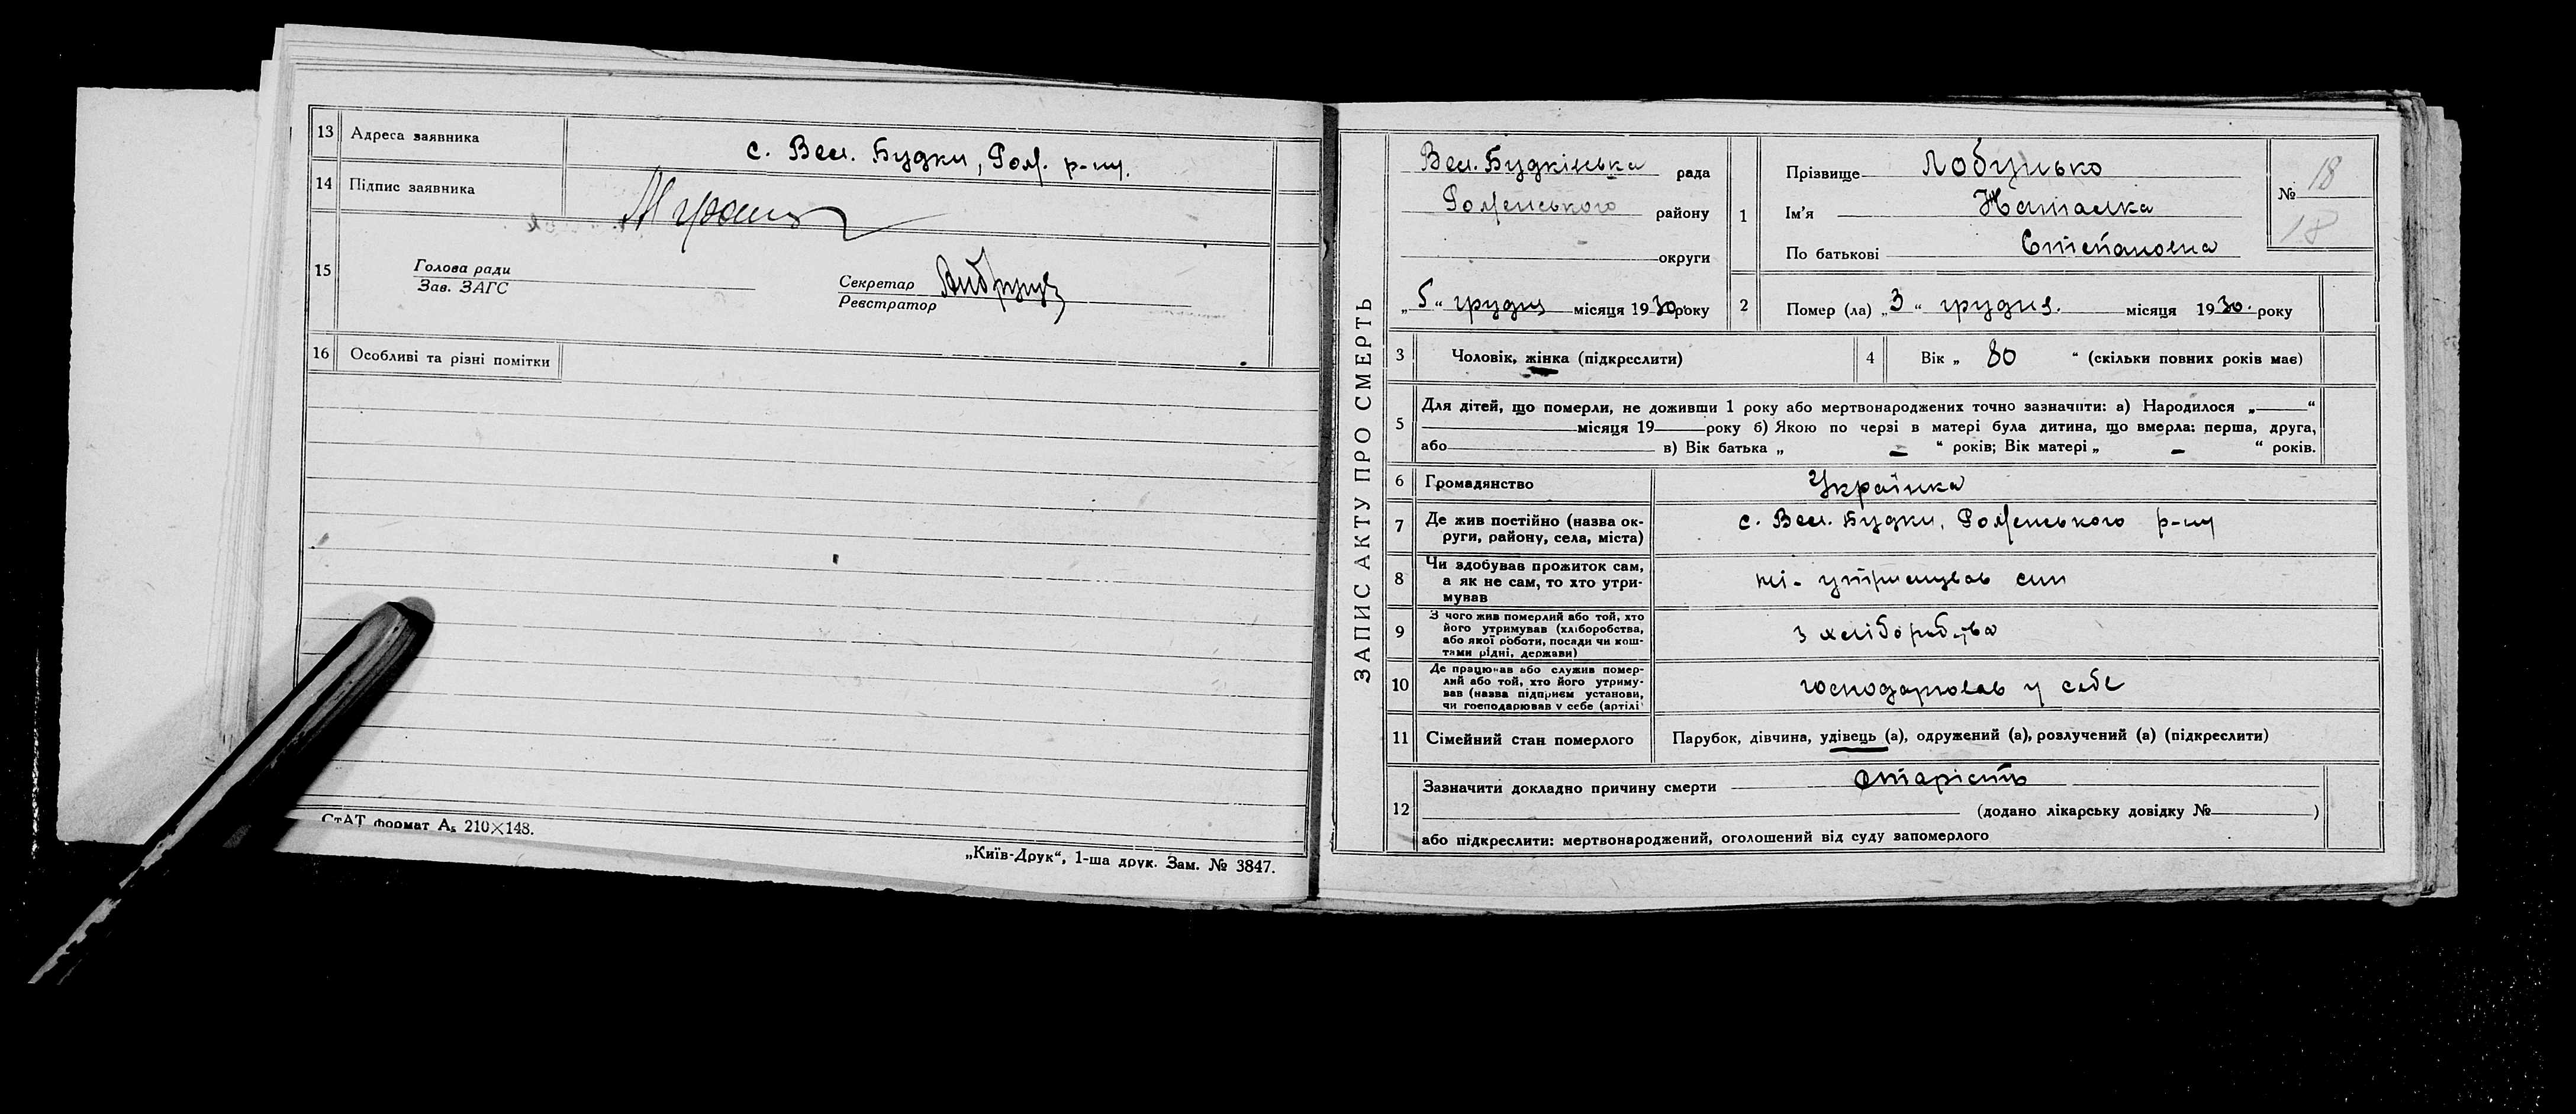 13 Адреса заявника с. Вел. Будки, Ром. р-ну.
14 Підпис заявника
15 Голова ради
Зав. ЗАГС
Секретар
Реєстратор
16 Особливі та різні помітки
СтАТ формат А₅ 210×148.
„Київ-Друк“, 1-ша друк. Зам. № 3847.
ЗАПИС АКТУ ПРО СМЕРТЬ
Вел. Будківська рада
Роменського району
округи
„5“ грудня місяця 1930 року
1 Прізвище Лобунько
Ім'я Наталка
По батькові Степановна
№ 18
18
2 Помер (ла) „3“ грудня. місяця 1930. року
3 Чоловік, жінка (підкреслити)
4 Вік „ 80 “ (скільки повних років має)
5 Для дітей, що померли, не доживши 1 року або мертвонароджених точно зазначити: а) Народилося „—“
місяця 19— року б) Якою по черзі в матері була дитина, що вмерла: перша, друга,
або в) Вік батька „ – “ років; Вік матері „ – “ років.
6 Громадянство Українка
7 Де жив постійно (назва ок-
руги, району, села, міста) с. Вел. Будки, Роменського р-ну
8 Чи здобував прожиток сам,
а як не сам, то хто утри-
мував ні - утримував син
9 З чого жив померлий або той, хто
його утримував (хліборобства,
або якої роботи, посади чи кош-
тами рідні, держави) з хліборобства
10 Де працював або служив помер-
лий або той, хто його утриму-
вав (назва підприєм установи,
чи господарював у себе (артілі) господарював у себе
11 Сімейний стан померлого Парубок, дівчина, удівець (а), одружений (а), розлучений (а) (підкреслити)
12 Зазначити докладно причину смерти старість
(додано лікарську довідку № )
або підкреслити: мертвонароджений, оголошений від суду запомерлого